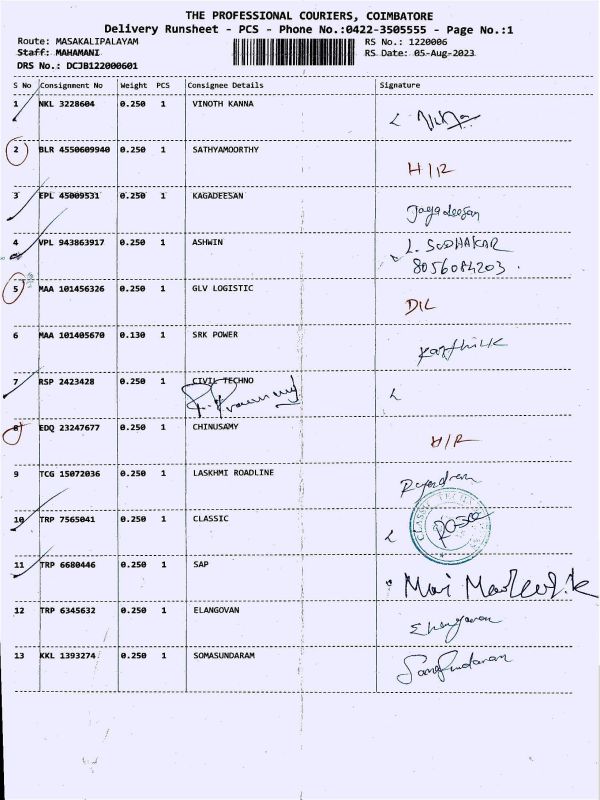 THE PROFESSIONAL COURIERS, COIMBATORE
Delivery Runsheet - PCS - Phone No.:0422-3505555 - Page No.:1
Route: MASAKALIPALAYAM RS No.: 1220006
Staff: MAHAMANI RS Date: 05-Aug-2023
DRS No.: DCJB122000601
S No Consignment No Weight PCS Consignee Details Signature
1 NKL 3228604 0.250 1 VINOTH KANNA
2 BLR 4550609940 0.250 1 SATHYAMOORTHY
H/R
3 EPL 45009531 0.250 1 KAGADEESAN
Jagadeesan
4 VPL 943863917 0.250 1 ASHWIN L. SUDHAKAR
8056084203.
5 MAA 101456326 0.250 1 GLV LOGISTIC
D/L
6 MAA 101405670 0.130 1 SRK POWER
Karthik
7 RSP 2423428 0.250 1 CIVIL TECHNO
8 EDQ 23247677 0.250 1 CHINUSAMY
H/R
9 TCG 15072036 0.250 1 LASKHMI ROADLINE
Rajendran
10 TRP 7565041 0.250 1 CLASSIC
CLASSIC TECH
11 TRP 6680446 0.250 1 SAP
Mari
12 TRP 6345632 0.250 1 ELANGOVAN
Elangovan
13 KKL 1393274 0.250 1 SOMASUNDARAM